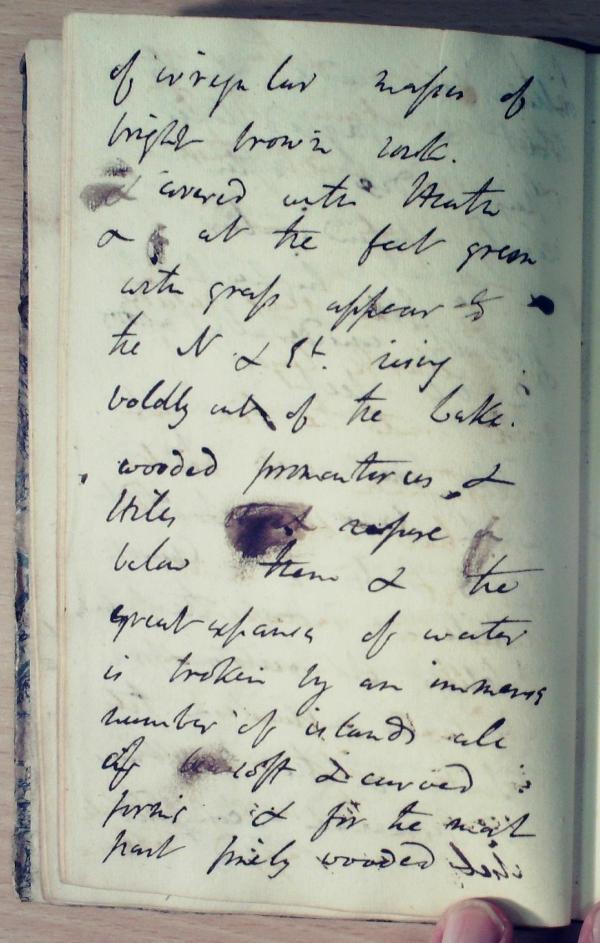 of irregular masses of
bright brown rock.
& covered with Heath
& at the feet green
with grass appear to
the N & St. rising
boldly out of the Lake.
wooded promontories &
Hills & repose
below them & the
great expanse of water
is broken by an immense
number of islands all
of soft & curved
forms & for the most
part finely wooded